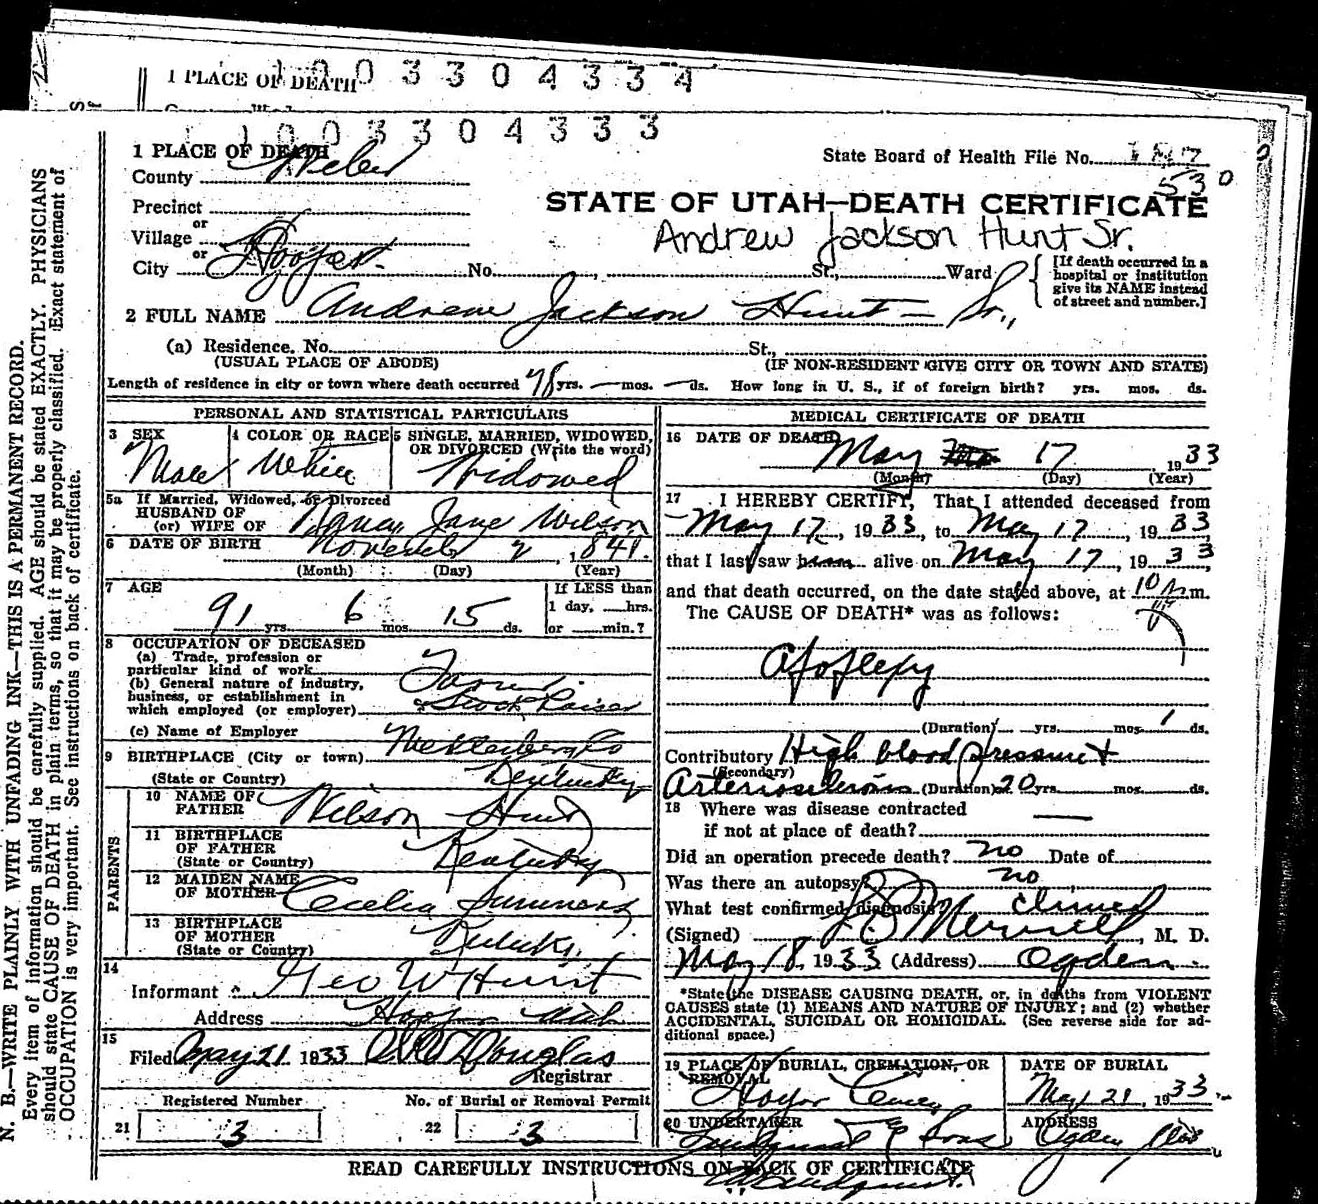 1 PLACE OF DEATH
1003304334
1003304333
1 PLACE OF DEATH
State Board of Health File No.
530
County Weber
STATE OF UTAH—DEATH CERTIFICATE
Precinct
or
Village
Andrew Jackson Hunt Sr.
or
City Hooper No. , St., Ward
[If death occurred in a hospital or institution give its NAME instead of street and number.]
2 FULL NAME Andrew Jackson Hunt — Sr.,
(a) Residence. No. St.,
(USUAL PLACE OF ABODE) (IF NON-RESIDENT GIVE CITY OR TOWN AND STATE)
Length of residence in city or town where death occurred 78 yrs. — mos. — ds. How long in U. S., if of foreign birth? yrs. mos. ds.
PERSONAL AND STATISTICAL PARTICULARS
3 SEX 4 COLOR OR RACE 5 SINGLE, MARRIED, WIDOWED, OR DIVORCED (Write the word)
Male White Widowed
5a If Married, Widowed, or Divorced
HUSBAND OF
(or) WIFE OF Nancy Jane Wilson
6 DATE OF BIRTH November 2, 1841.
(Month) (Day) (Year)
7 AGE If LESS than
91 yrs. 6 mos. 15 ds. 1 day, hrs.
or min.?
8 OCCUPATION OF DECEASED
(a) Trade, profession or
particular kind of work
(b) General nature of industry,
business, or establishment in
which employed (or employer) & Stock Raiser
(c) Name of Employer
9 BIRTHPLACE (City or town)
(State or Country) Kentucky
PARENTS
10 NAME OF FATHER Wilson Hunt
11 BIRTHPLACE OF FATHER
(State or Country) Kentucky
12 MAIDEN NAME OF MOTHER Cecelia Summers
13 BIRTHPLACE OF MOTHER
(State or Country)
14
Informant Geo W Hunt
Address Hooper Utah
15
Filed May 21 1933 Douglas
Registrar
Registered Number No. of Burial or Removal Permit
21 3 22 3
MEDICAL CERTIFICATE OF DEATH
16 DATE OF DEATH May 17 1933
(Month) (Day) (Year)
17 I HEREBY CERTIFY, That I attended deceased from
May 17, 1933, to May 17, 1933,
that I last saw him alive on May 17, 1933,
and that death occurred, on the date stated above, at 10 m.
The CAUSE OF DEATH* was as follows:
Apoplexy
(Duration) yrs. mos. 1 ds.
Contributory High blood pressure &
(Secondary)
Arteriosclerosis (Duration) 20 yrs. mos. ds.
18 Where was disease contracted
if not at place of death?
Did an operation precede death? no Date of
Was there an autopsy? no
What test confirmed diagnosis? clinical
(Signed) Merrill, M. D.
May 18, 1933 (Address) Ogden
*State the DISEASE CAUSING DEATH, or, in deaths from VIOLENT
CAUSES state (1) MEANS AND NATURE OF INJURY; and (2) whether
ACCIDENTAL, SUICIDAL OR HOMICIDAL. (See reverse side for additional space.)
19 PLACE OF BURIAL, CREMATION, OR REMOVAL DATE OF BURIAL
May 21, 1933
20 UNDERTAKER ADDRESS
& Sons Ogden
READ CAREFULLY INSTRUCTIONS ON BACK OF CERTIFICATE
N. B.—WRITE PLAINLY WITH UNFADING INK—THIS IS A PERMANENT RECORD.
Every item of information should be carefully supplied. AGE should be stated EXACTLY. PHYSICIANS
should state CAUSE OF DEATH in plain terms, so that it may be properly classified. Exact statement of
OCCUPATION is very important. See instructions on back of certificate.